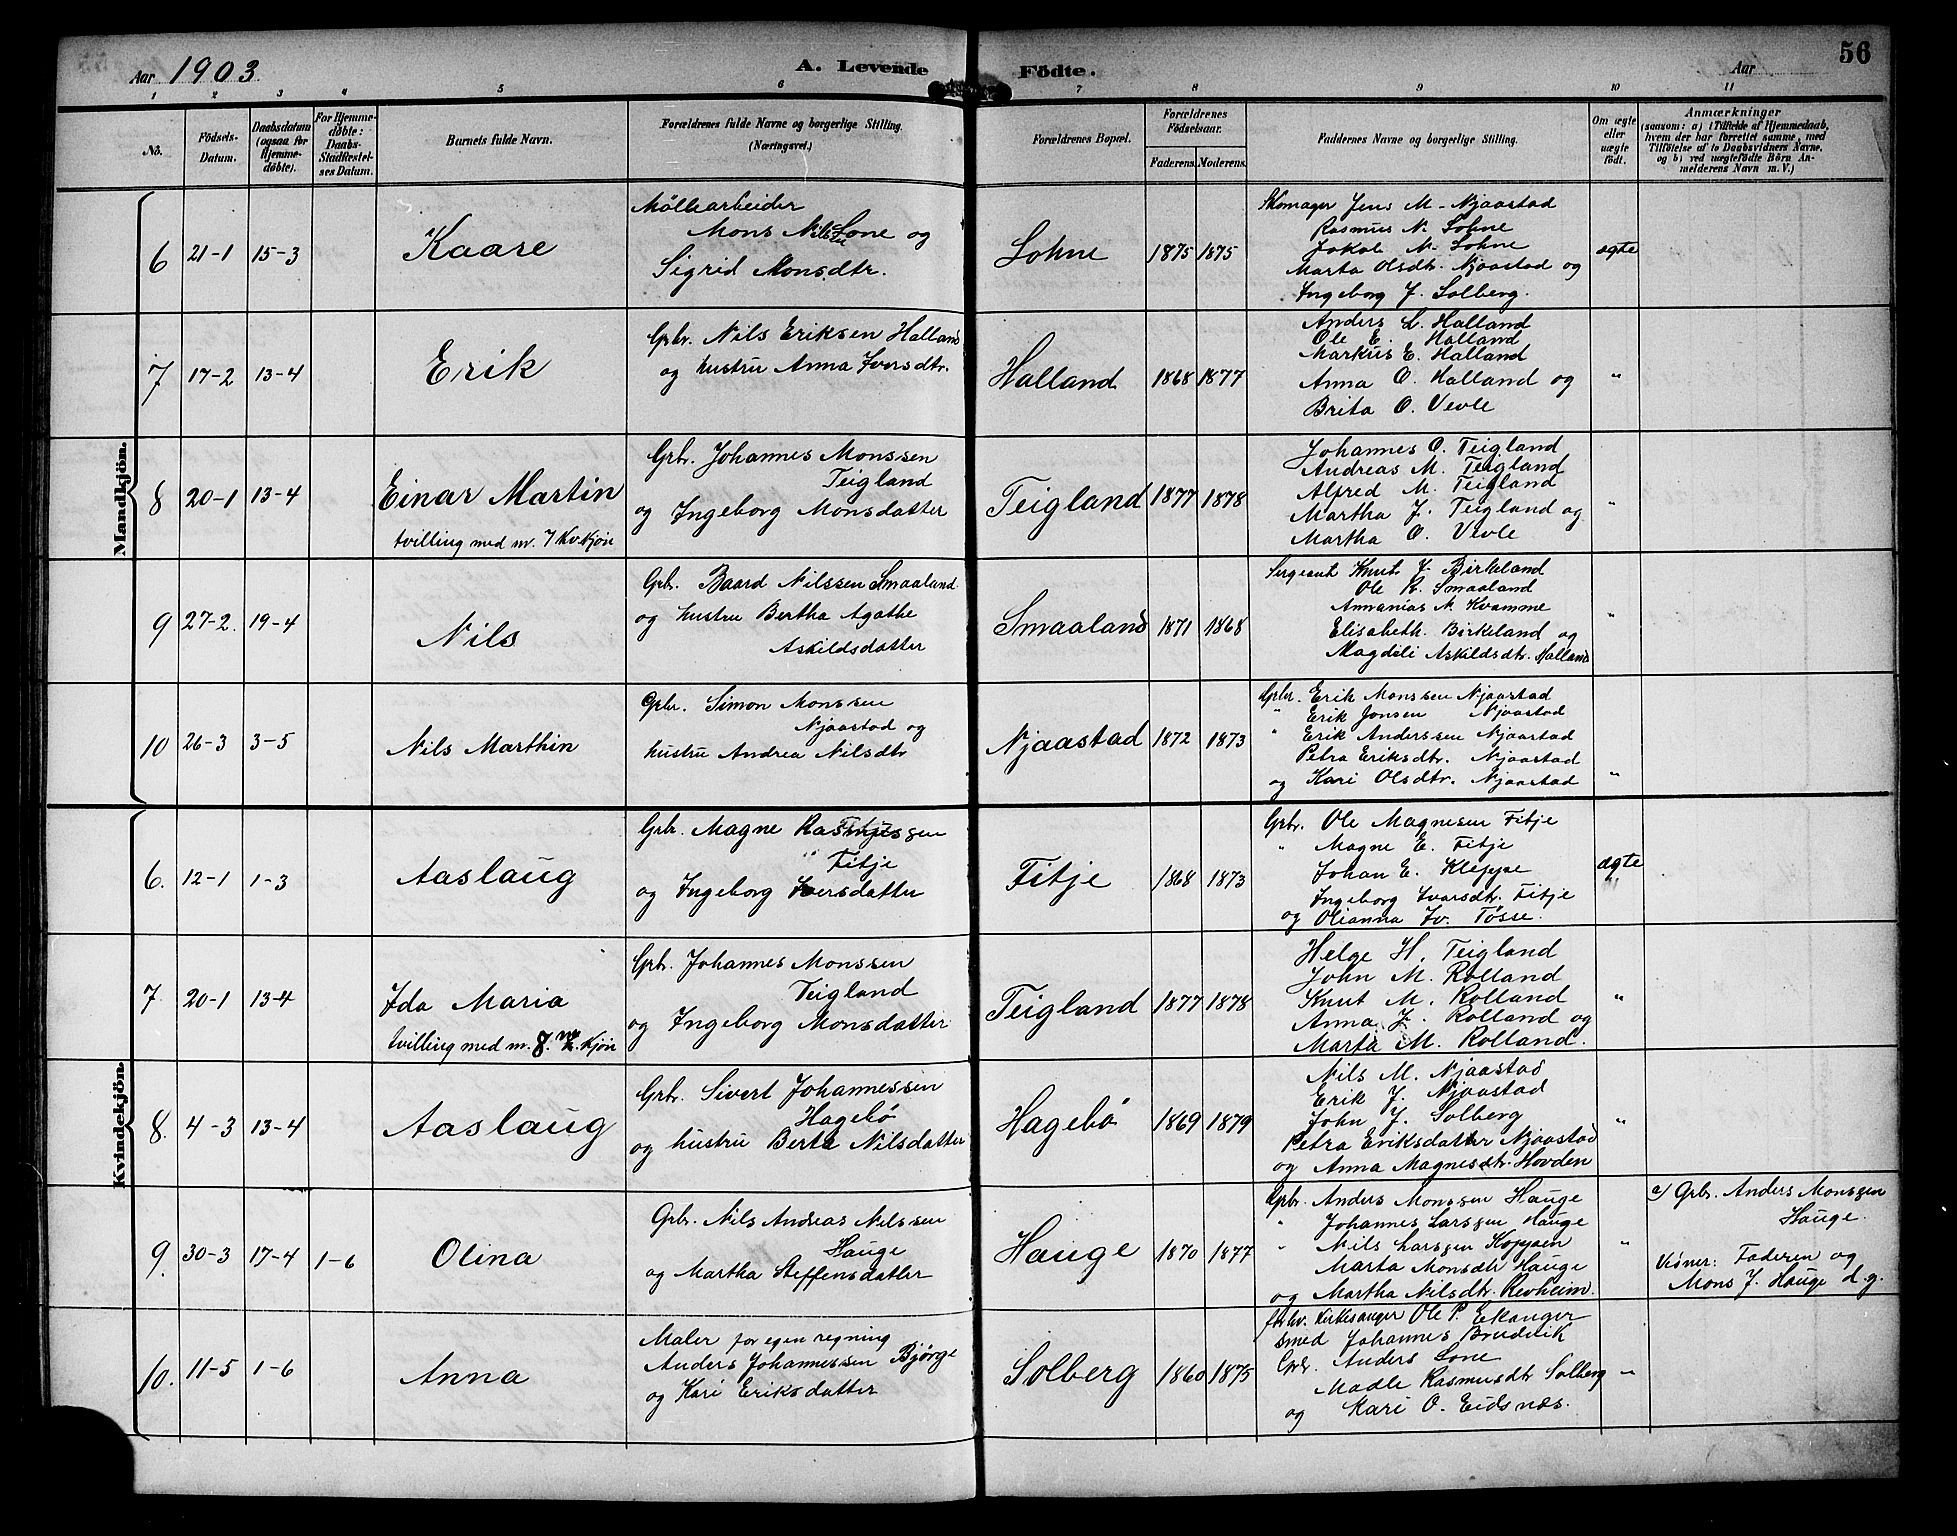 Aar 1903.
A. Levende Fødte.
Aar
56
1 2 3 4 5 6 7 8 9 10 11
No.
Födsels-Datum.
Daabsdatum (ogsaa for Hjemmedøbte).
For Hjemmedøbte: Daabs-Stadfæstelses Datum.
Barnets fulde Navn.
Forældrenes fulde Navne og borgerlige Stilling. (Næringsvei.)
Forældrenes Bopæl.
Forældrenes Födselsaar.
Faderens. Moderens.
Faddernes Navne og borgerlige Stilling.
Om ægte eller uægte født.
Anmærkninger
(saasom: a) i Tilfælde af Hjemmedaab, hvem der har forrettet samme, med Tilföielse af to Daabsvidners Navne, og b) ved uægtefödte Börn Anmelderens Navn m. V.)
Mandkjön.
6 21-1 15-3 Kaare
Mølliearbeider
Mons Nilssen Lone og
Sigrid Monsdtr.
Lohne 1875 1875
Skomager Jens M. Njaastad
Rasmus N. Lohne
Jokab M. Lohne
Marta Olsdtr. Njaastad og
Ingeborg J. Solberg.
ægte
7 17-2 13-4 Erik
Grbr. Nils Eriksen Halland
og hustru Anna Iversdtr.
Halland 1868 1877
Anders L. Halland
Ole E. Halland
Markus E. Halland
Anna O. Halland og
Brita O. Vevle
"
8 20-1 13-4 Einar Martin
tvilling med nr. 7 Kv.kjön
Grbr. Johannes Monssen
Teigland
og Ingeborg Monsdatter
Teigland 1877 1878
Johannes O. Teigland
Andreas M. Teigland
Alfred M. Teigland
Martha J. Teigland og
Martha O. Vevle
"
9 27-2. 19-4 Nils
Grbr. Baard Nilssen Smaaland
og hustru Bertha Agathe
Askildsdatter
Smaaland 1871 1868
Sergeant Knut J. Birkeland
Ole R. Smaaland
Annanias N. Kvamme
Elisabeth. Birkeland og
Magdeli Askildsdtr. Halland
"
10 26-3 3-5 Nils Marthin
Grbr. Simon Monssen
Njaastad og
hustru Andrea Nilsdtr
Njaastad 1872 1873
Grbr. Erik Monssen Njaastad
" Erik Jonsen Njaastad
" Erik Anderssen Njaastad
Petra Eriksdtr. Njaastad
og Kari Olsdtr. Njaastad
"
Kvindekjön.
6. 12-1 1-3 Aaslaug
Grbr. Magne Rasmussen
Fitje
og Ingeborg Iversdatter
Fitje 1868 1873
Grbr. Ole Magnesen Fitje
" Magne E. Fitje
Johan E. Kleppe
Ingeborg Ivarsdtr. Fitje
og Olianna Iv. Tøsse.
ægte
7. 20-1 13-4 Ida Maria
tvilling med nr. 8. M. kjön
Grbr. Johannes Monssen
Teigland
og Ingeborg Monsdatter
Teigland 1877 1878
Helge H. Teigland
John M. Rolland
Knut M. Rolland
Anna J. Rolland og
Marta M. Rolland.
"
8. 4-3 13-4 Aaslaug
Grbr. Sivert Johannessen
Hagebø
og hustru Berta Nilsdatter
Hagebø 1869 1879
Nils M. Njaastad
Erik J. Njaastad
John J. Solberg
Petra Eriksdatter Njaastad
og Anna Magnesdtr. Hovden
"
9. 30-3 17-4 1-6 Olina
Grbr. Nils Andreas Nilssen
Hauge
og Martha Steffensdatter
Hauge 1870 1877
Grbr. Anders Monssen Hauge
" Johannes Larssen Hauge
" Nils Larssen Koppen
Marta Monsdtr Hauge
og Martha Nilsdtr. Revheim.
"
a/ Grbr. Anders Monssen
Hauge.
Vidner: Faderen og
Mons J. Hauge d.y.
10. 11-5 1-6 Anna
Maler for egen regning
Anders Johannessen Bjørge
og Kari Eriksdatter
Solberg 1860 1875
fhv. Kirkesanger Ole P. Eikanger
Smed Johannes Brudvik
Grbr. Anders Lone
Madli Rasmusdtr Solberg
og Kari O. Eidsnæs.
"